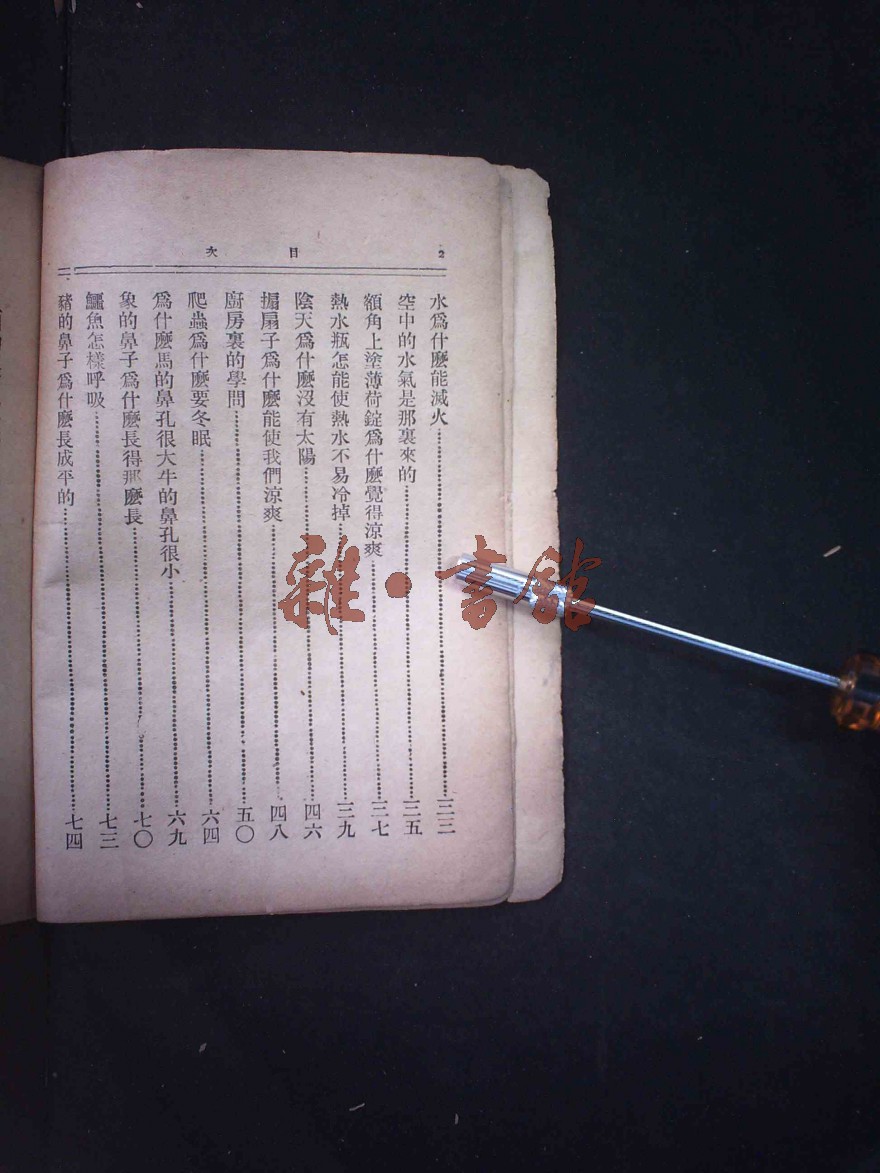 目次
2
水為什麼能滅火 三三
空中的水氣是那裏來的 三五
額角上塗薄荷錠為什麼覺得涼爽 三七
熱水瓶怎能使熱水不易冷掉 三九
陰天為什麼沒有太陽 四六
搧扇子為什麼能使我們涼爽 四八
廚房裏的學問 五〇
爬蟲為什麼要冬眠 六四
為什麼馬的鼻孔很大牛的鼻孔很小 六九
象的鼻子為什麼長得那麼長 七〇
鱷魚怎樣呼吸 七三
豬的鼻子為什麼長成平的 七四
雜·書館